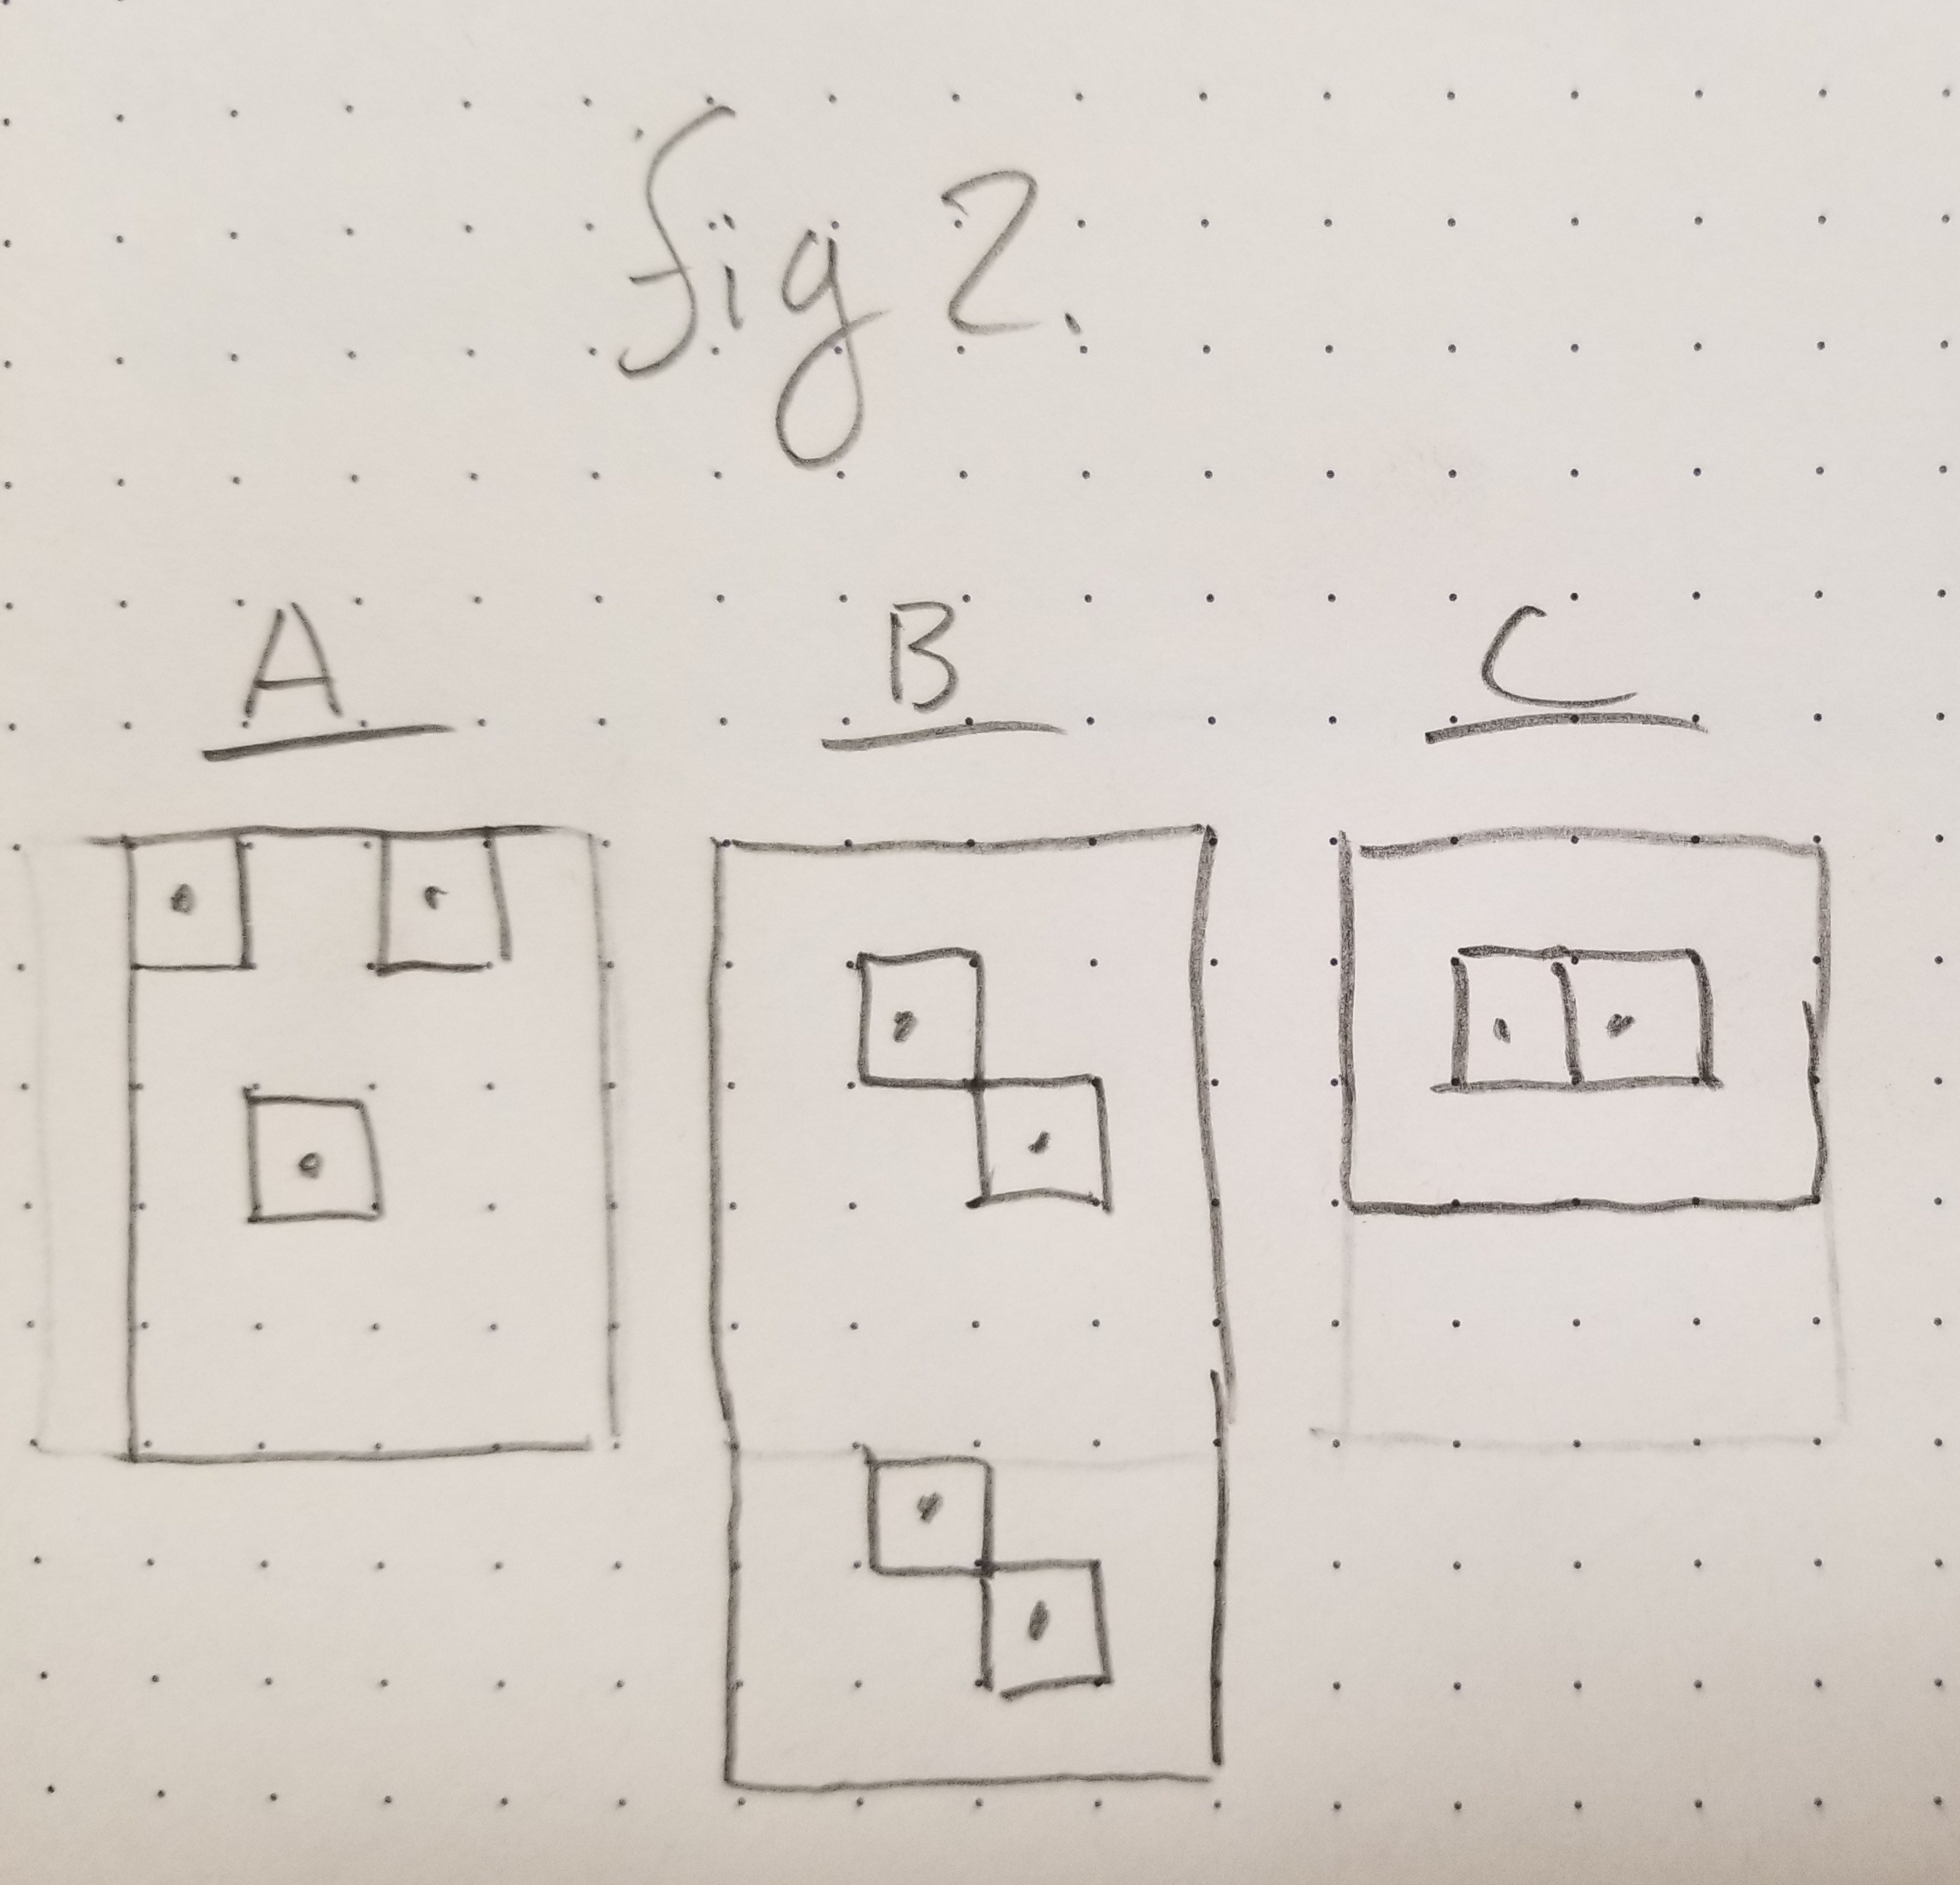 fig 2.
A B C